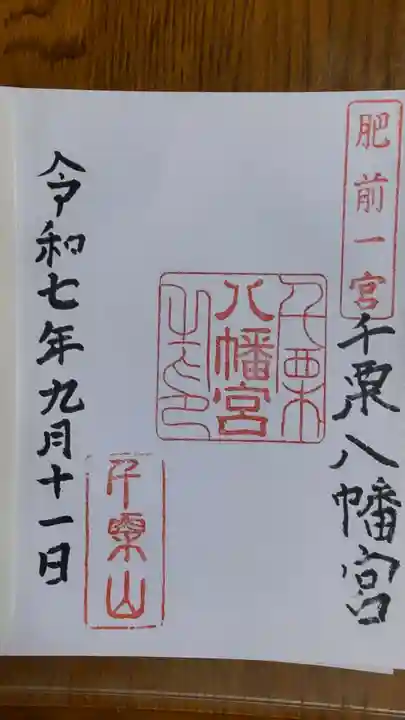 肥前一宮
千栗八幡宮
千栗
八幡宮
千栗山
令和七年九月十一日